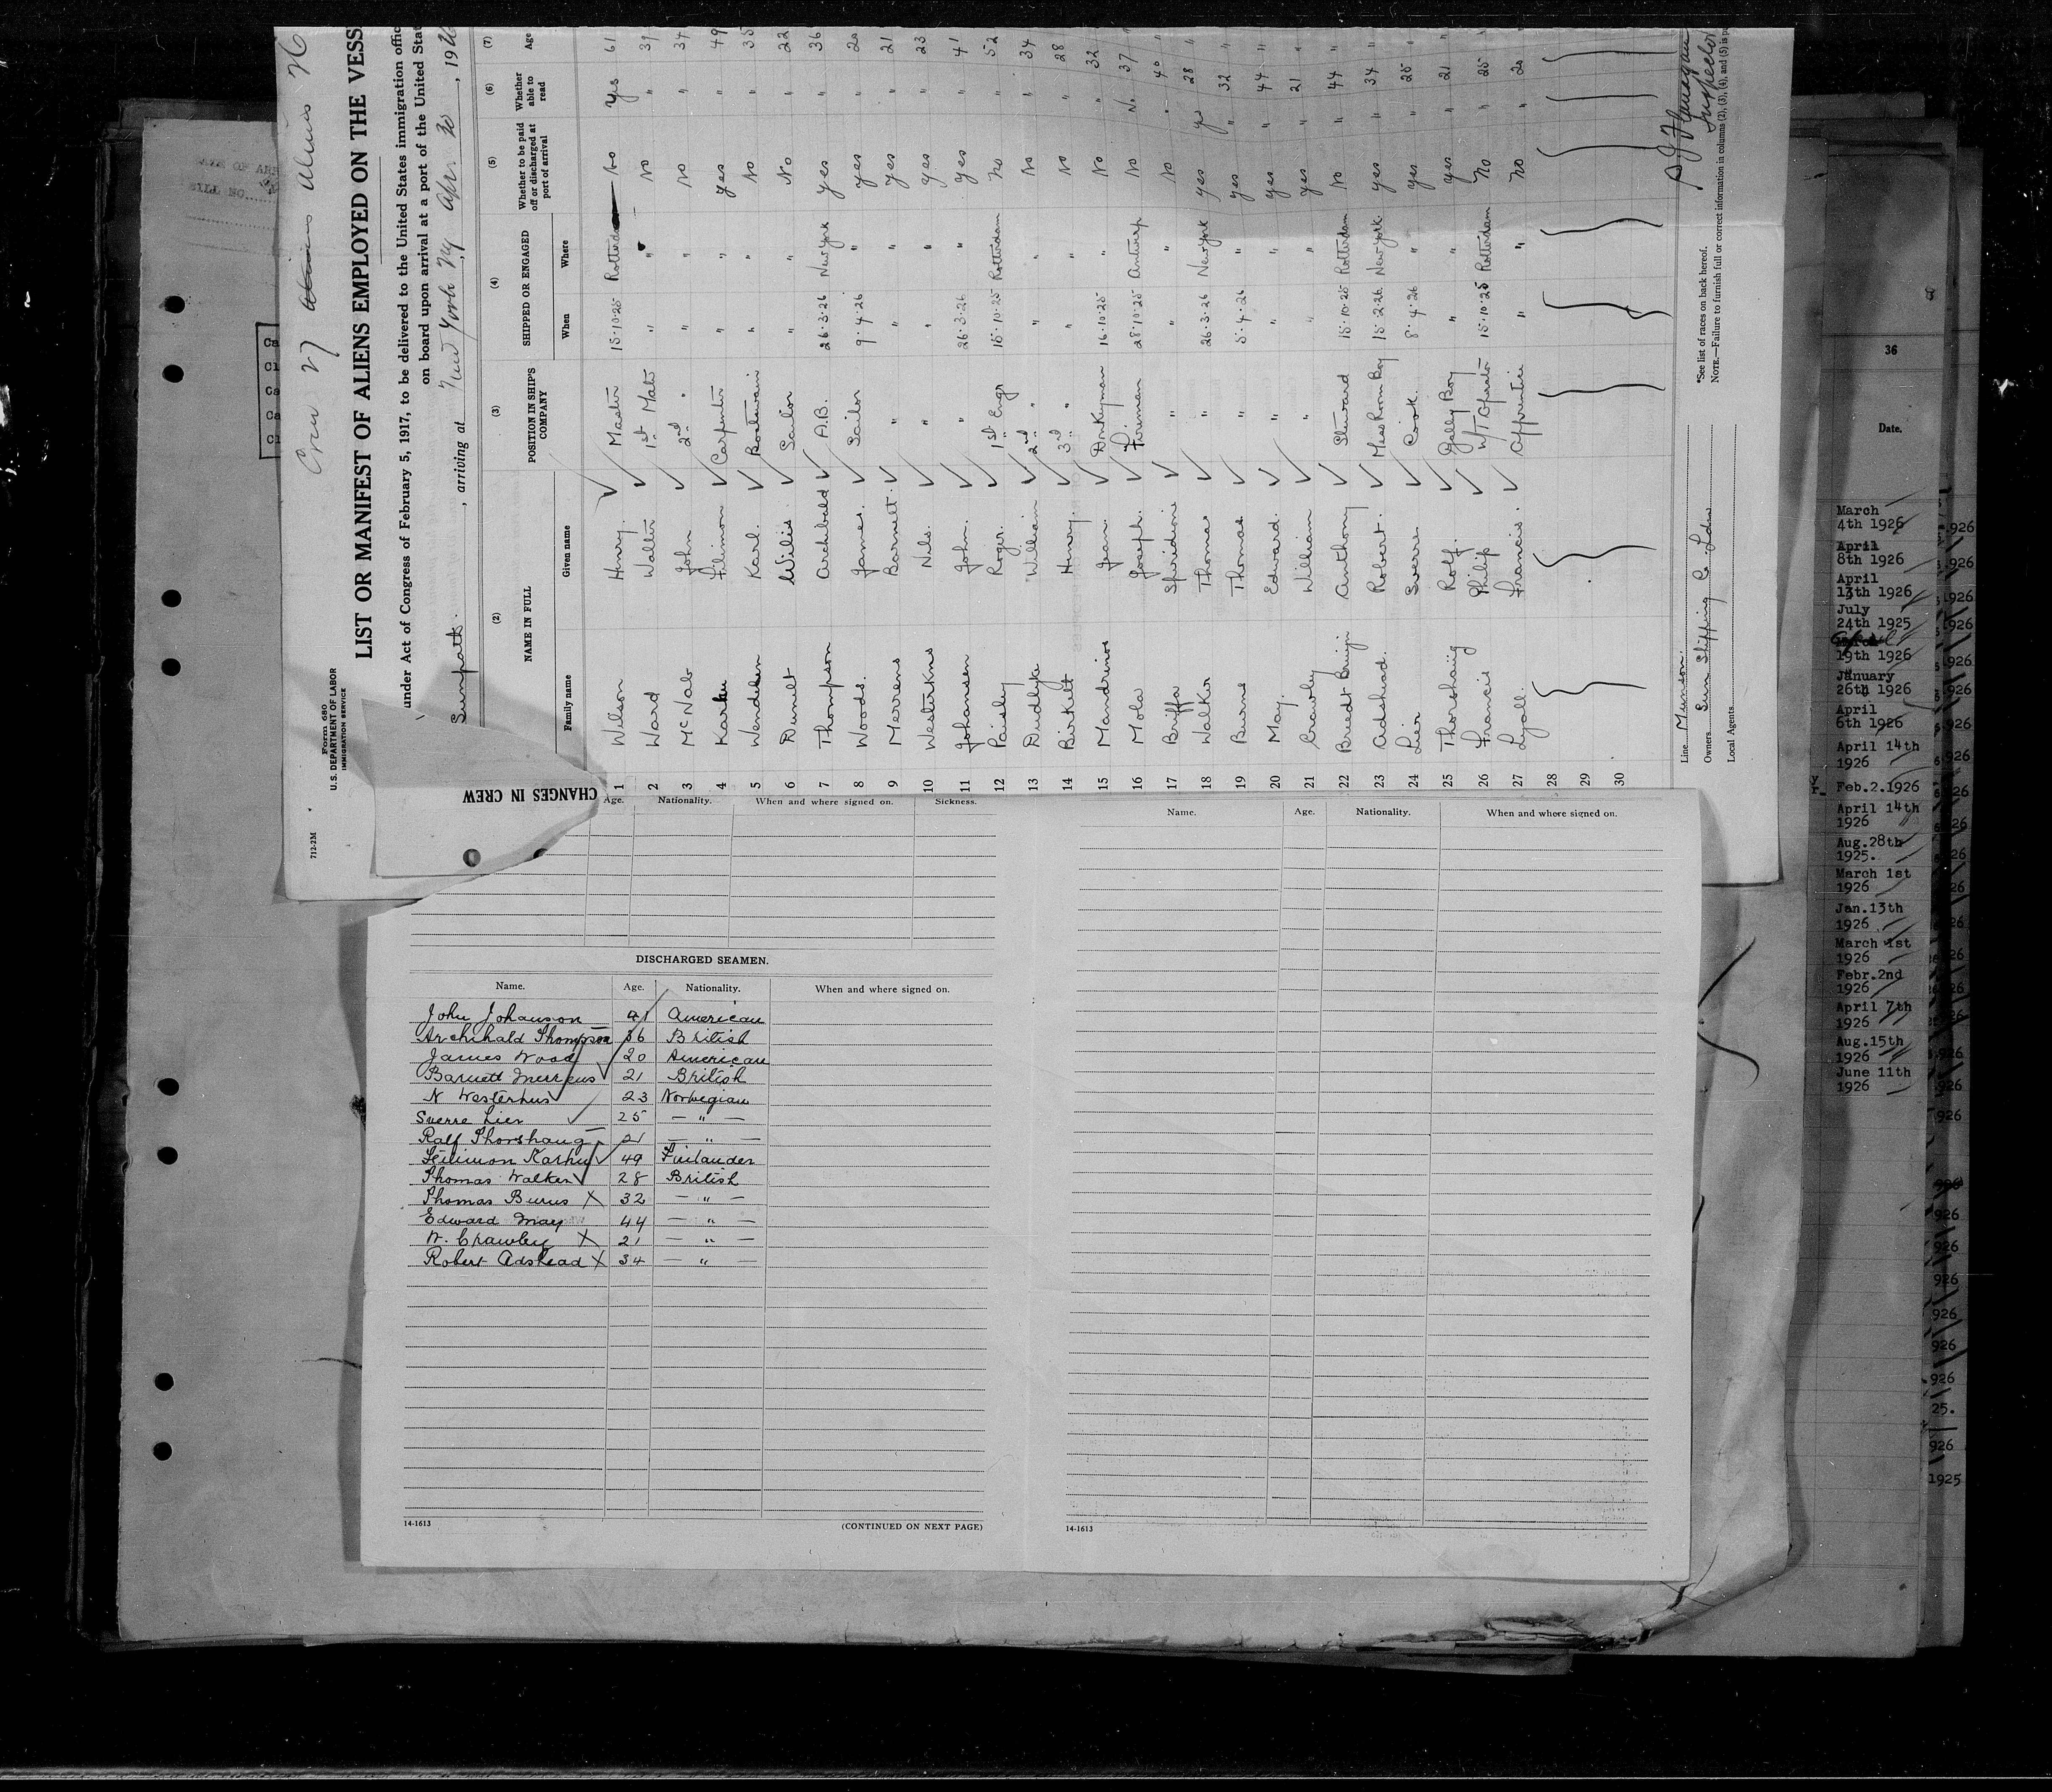 Crew 27 Aliens 26
712-2M
Form 680
U.S. DEPARTMENT OF LABOR
IMMIGRATION SERVICE
LIST OR MANIFEST OF ALIENS EMPLOYED ON THE VESS
under Act of Congress of February 5, 1917, to be delivered to the United States immigration offic
on board upon arrival at a port of the United Stat
Sunpath. , arriving at New York NY Apr 20 , 1926
(2) (3) (4) (5) (6) (7)
NAME IN FULL POSITION IN SHIP'S COMPANY SHIPPED OR ENGAGED Whether to be paid off or discharged at port of arrival Whether able to read Age
Family name Given name When Where
1 Wilson Henry. Master 15.10.25 Rotterdam No Yes 61
2 Ward Walter 1st Mate " " No " 39
3 McNab John 2nd " " " No " 34
4 Karhu Filimon Carpenter " " Yes " 49
5 Karl. Boatswain " " No " 35
6 Willis. Sailor " " No " 22
7 Thompson Archibald A.B. 26.3.26 New York Yes " 36
8 Woods. James. Sailor 9.4.26 " Yes " 20
9 Merrens Barnett. " " " Yes " 21
10 Westerhus Nils. " " " Yes " 23
11 Johansen John. " 26.3.26 " Yes " 41
12 Paisley Roger. 1st Engr 15.10.25 Rotterdam No " 52
13 Dudlyke William 2nd " " " No " 34
14 Birkett Henry. 3rd " " " No " 28
15 Mandrinos Jean. Donkeyman 16.10.25 " No " 32
16 Mola Joseph. Fireman 28.10.25 Antwerp No No. 37
17 Briffa Spiridione " " " No " 40
18 Walker Thomas " 26.3.26 New York yes yes 28
19 Burns Thomas " 5.4.26 " yes " 32
20 May. Edward. " " " yes " 44
21 Crawly William " " " yes " 21
22 Breedt Bruijn Anthony Steward 15.10.25 Rotterdam No " 44
23 Adshead. Robert. Mess Room Boy 15.2.26 New York yes " 34
24 Lier Sverre Cook. 8.4.26 " yes " 25
25 Thorshaug Rolf. Galley Boy " " yes " 21
26 Francis Philip W/T Operator 15.10.25 Rotterdam No " 25
27 Lyall. Francis. Apprentice " " No " 20
28
29
30
Line Munson.
Owners Sun Shipping Co. Ldn.
Local Agents
*See list of races on back hereof.
NOTE.—Failure to furnish full or correct information in columns (2), (3), (4), and (5) is pu
Inspector
CHANGES IN CREW
Age. Nationality. When and where signed on. Sickness.
Name. Age. Nationality. When and where signed on.
DISCHARGED SEAMEN.
Name. Age. Nationality. When and where signed on.
John Johanson 41 American
Archibald Thompson 36 British
James Wood 20 American
Barnett Merrens 21 British
N Westerhus 23 Norwegian
Sverre Lier 25 — " —
Ralf Thorshaug 21 — " —
Feilimon Karhu 49 Finlander
Thomas Walker 28 British
Thomas Burns X 32 — " —
Edward May 44 — " —
W. Crawley X 21 — " —
Robert Adshead X 34 — " —
14-1613
(CONTINUED ON NEXT PAGE)
14-1613
36
Date.
March
4th 1926
April
8th 1926
April
13th 1926
July
24th 1925
April
19th 1926
January
26th 1926
April
6th 1926
April 14th
1926
Feb.2.1926
April 14th
1926
Aug.28th
1925.
March 1st
1926
Jan.13th
1926
March 1st
1926
Febr.2nd
1926
April 7th
1926
Aug.15th
1926
June 11th
1926